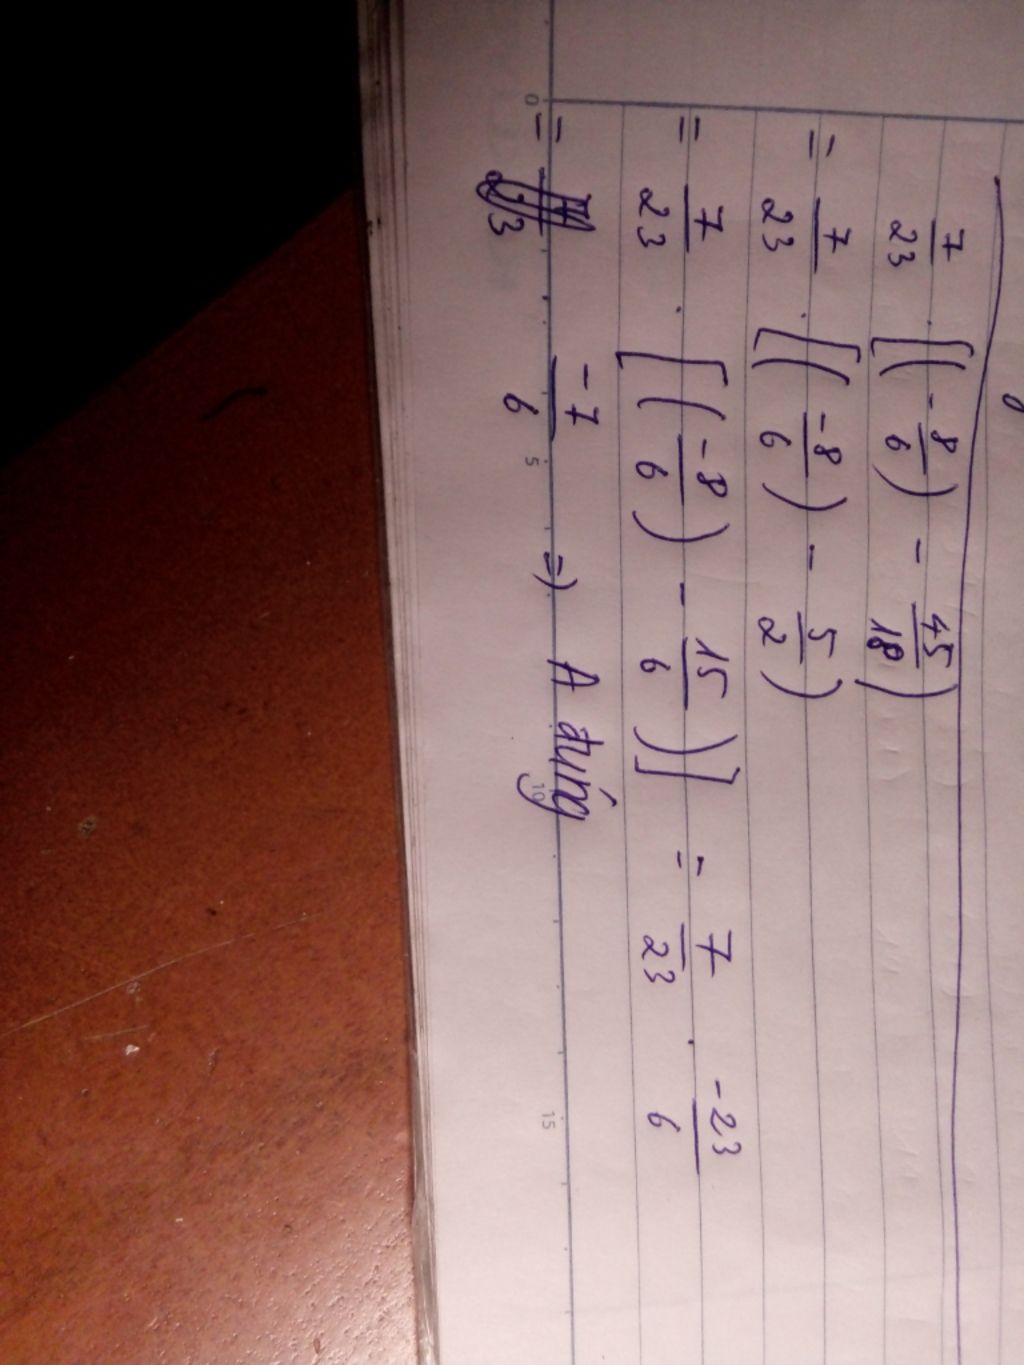 7/23 . [(-8/6) - 45/18)
= 7/23 . [(-8/6) - 5/2)
= 7/23 . [(-8/6) - 15/6)] = 7/23 . -23/6
= -7/6 => A đúng
0 5 10 15